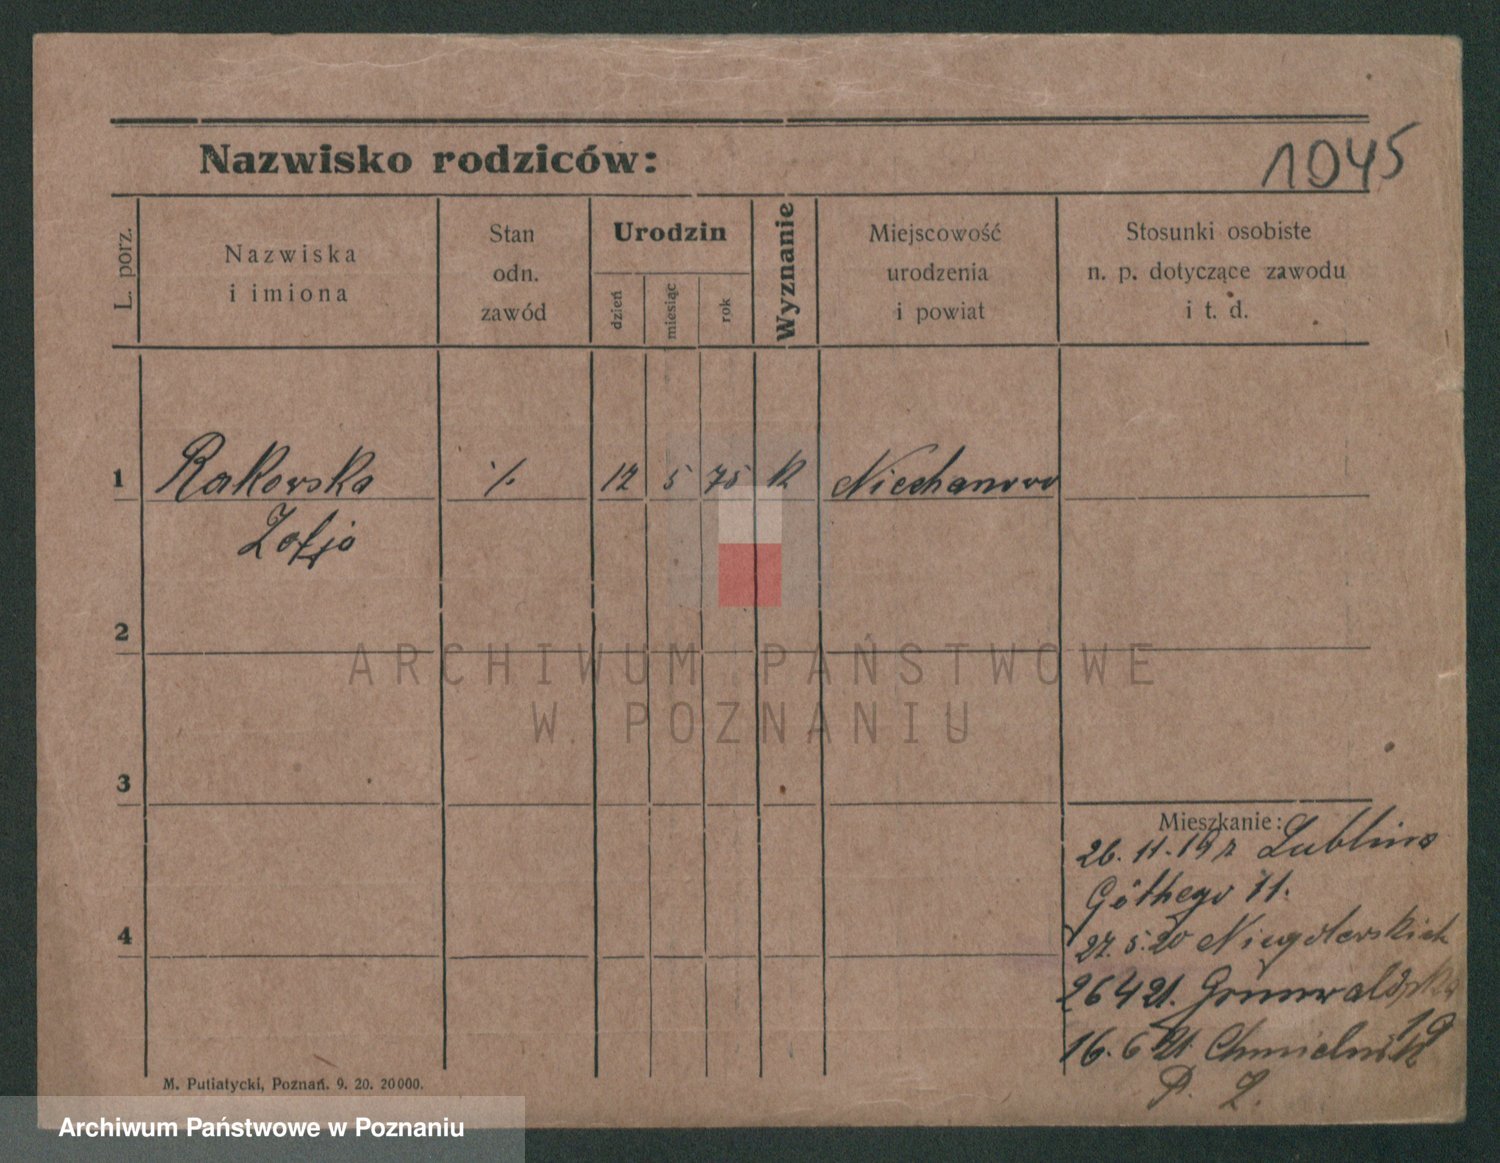 Nazwisko rodziców:
1045
L. porz.
Nazwiska
i imiona
Stan
odn.
zawód
Urodzin
dzień
miesiąc
rok
Wyznanie
Miejscowość
urodzenia
i powiat
Stosunki osobiste
n. p. dotyczące zawodu
i t. d.
1 Rakowska % 12 5 75 k Niechanowo
Zofja
2
ARCHIWUM PAŃSTWOWE
W POZNANIU
3
Mieszkanie:
26. 11. 19 r Lublina
Göthego 11.
4
27. 5. 20 Niegolewskich
26 4 21. Grunwaldzka
19
16. 6 21 Chmielnik
P. Z.
M. Putiatycki, Poznań. 9. 20. 20000.
Archiwum Państwowe w Poznaniu